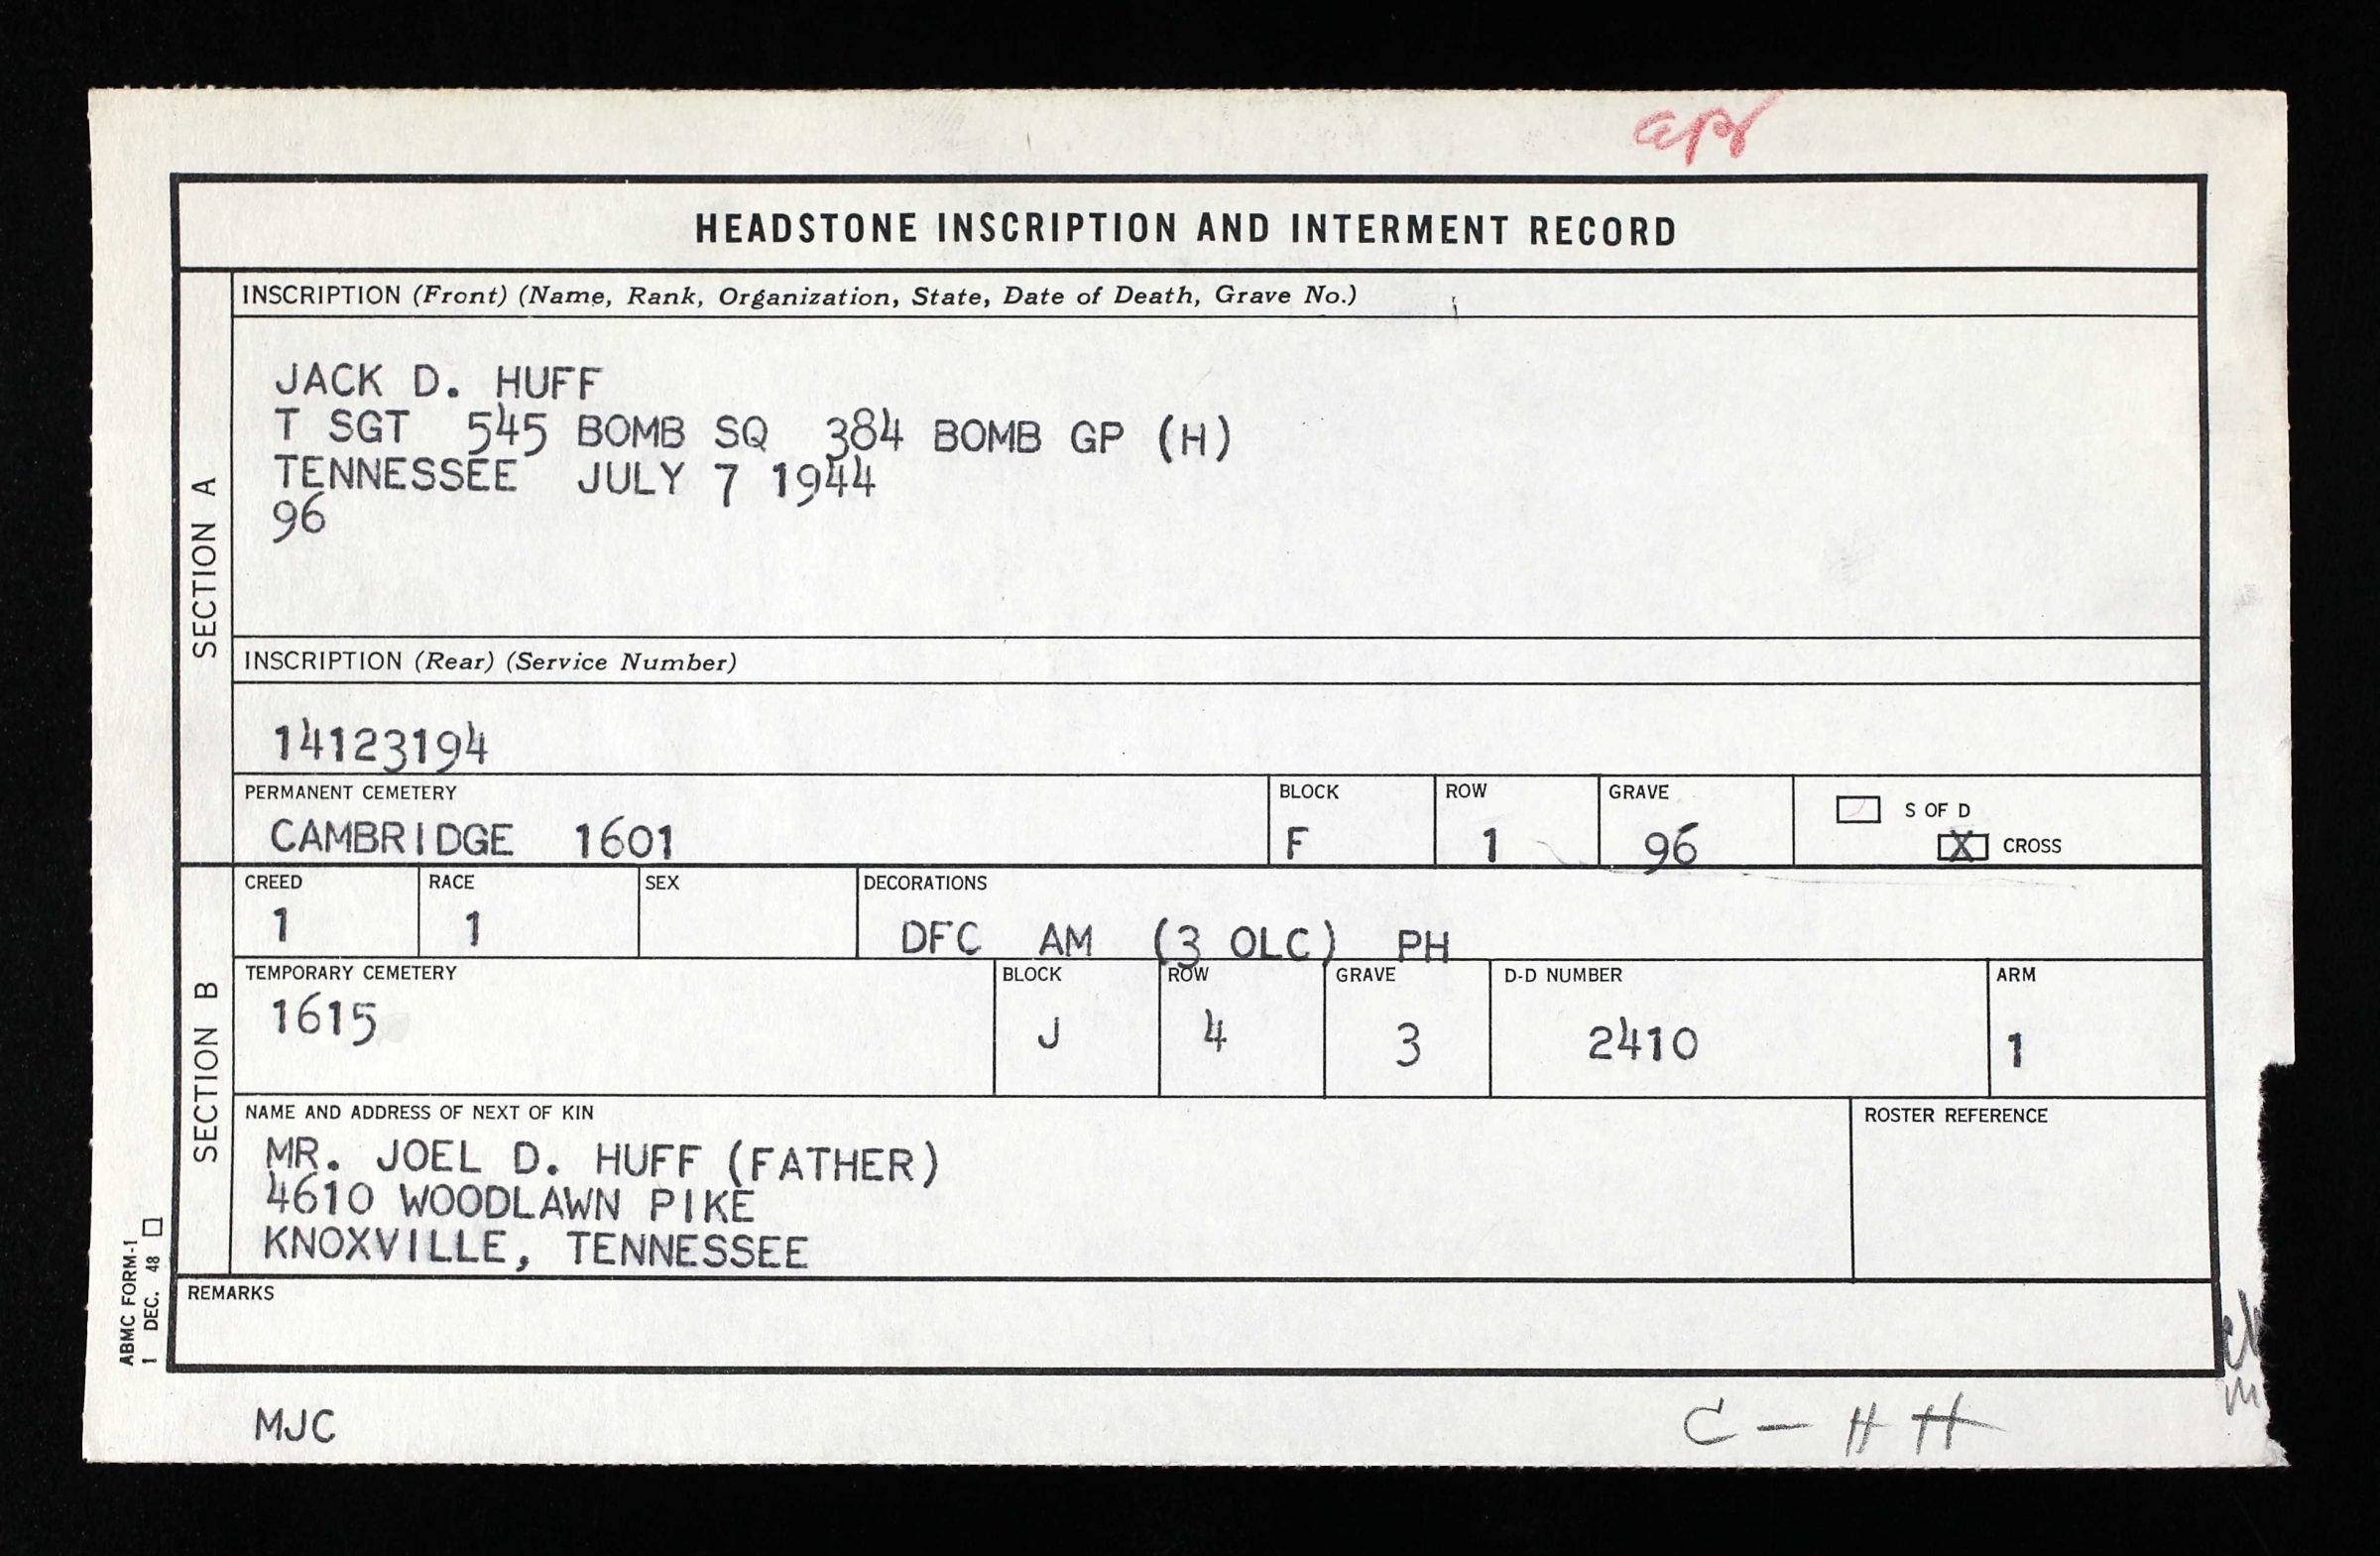 apr
HEADSTONE INSCRIPTION AND INTERMENT RECORD
SECTION A
INSCRIPTION (Front) (Name, Rank, Organization, State, Date of Death, Grave No.)
JACK D. HUFF
T SGT 545 BOMB SQ 384 BOMB GP (H)
TENNESSEE JULY 7 1944
96
INSCRIPTION (Rear) (Service Number)
14123194
PERMANENT CEMETERY BLOCK ROW GRAVE S OF D
CAMBRIDGE 1601 F 1 96 X CROSS
SECTION B
CREED RACE SEX DECORATIONS
1 1 DFC AM (3 OLC) PH
TEMPORARY CEMETERY BLOCK ROW GRAVE D-D NUMBER ARM
1615 J 4 3 2410 1
NAME AND ADDRESS OF NEXT OF KIN ROSTER REFERENCE
MR. JOEL D. HUFF (FATHER)
4610 WOODLAWN PIKE
KNOXVILLE, TENNESSEE
REMARKS
ABMC FORM-1
1 DEC. 48
MJC
C - H H